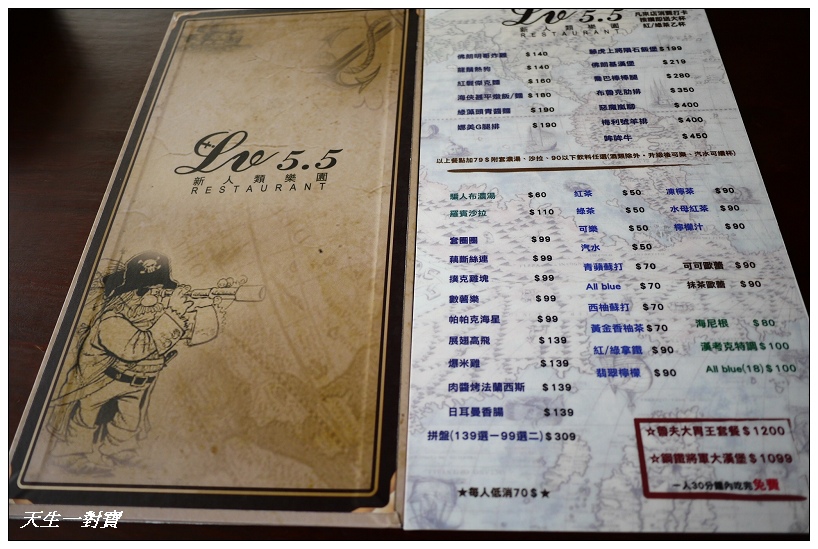 Lv 5.5
新人類樂園
RESTAURANT
Lv 5.5
新人類樂園
RESTAURANT
凡來店消費打卡
按讚即送大杯
紅/綠茶乙杯
佛朗明哥炸雞 $140
龍骨熱狗 $140
紅髮傑克麵 $160
海俠甚平燉飯/麵 $180
綠藻頭青醬麵 $190
娜美G腿排 $190
藤虎上將隕石飯堡 $199
佛朗基漢堡 $219
喬巴檸檸腿 $280
布魯克肋排 $350
惡魔嵐腳 $400
梅利號羊排 $400
哞哞牛 $450
以上餐點加79$附套濃湯、沙拉、90以下飲料任選(酒類除外,升級後可樂、汽水可續杯)
騙人布濃湯 $60
羅賓沙拉 $110
套圈圈 $99
藕斷絲連 $99
撲克雞塊 $99
數薯樂 $99
帕帕克海星 $99
展翅高飛 $139
爆米雞 $139
肉醬烤法蘭西斯 $139
日耳曼香腸 $139
拼盤(139選一99選二) $309
紅茶 $50
綠茶 $50
可樂 $50
汽水 $50
青蘋蘇打 $70
All blue $70
西柚蘇打 $70
黃金香柚茶 $70
紅/綠拿鐵 $90
翡翠檸檬 $90
凍檸茶 $90
水母紅茶 $90
檸檬汁 $90
可可歐蕾 $90
抹茶歐蕾 $90
海尼根 $80
漢考克特調 $100
All blue(18) $100
☆魯夫大胃王套餐 $1200
☆鋼鐵將軍大漢堡 $1099
一人30分鐘內吃完免費
★每人低消70$★
天生一對寶